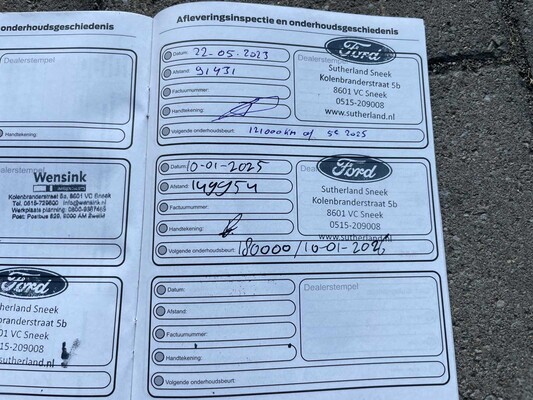 onderhoudsgeschiedenis
Dealerstempel
Handtekening:
Dealerstempel
Wensink
Kolenbranderstraat 5a, 8601 VC Sneek
Werkplaats planning:
Handtekening:
Ford
Sutherland Sneek
Kolenbranderstraat 5b
8601 VC Sneek
0515-209008
www.sutherland.nl
Afleveringsinspectie en onderhoudsgeschiedenis
Datum: 22-05-2023
Afstand: 91431
Factuurnummer:
Handtekening:
Volgende onderhoudsbeurt: 121000km of 5e 2025
Ford
Sutherland Sneek
Kolenbranderstraat 5b
8601 VC Sneek
0515-209008
www.sutherland.nl
Datum: 10-01-2025
Afstand: 149954
Factuurnummer:
Handtekening:
Volgende onderhoudsbeurt: 180000/10-01-2026
Ford
Sutherland Sneek
Kolenbranderstraat 5b
8601 VC Sneek
0515-209008
www.sutherland.nl
Datum:
Afstand:
Factuurnummer:
Handtekening:
Volgende onderhoudsbeurt:
Dealerstempel